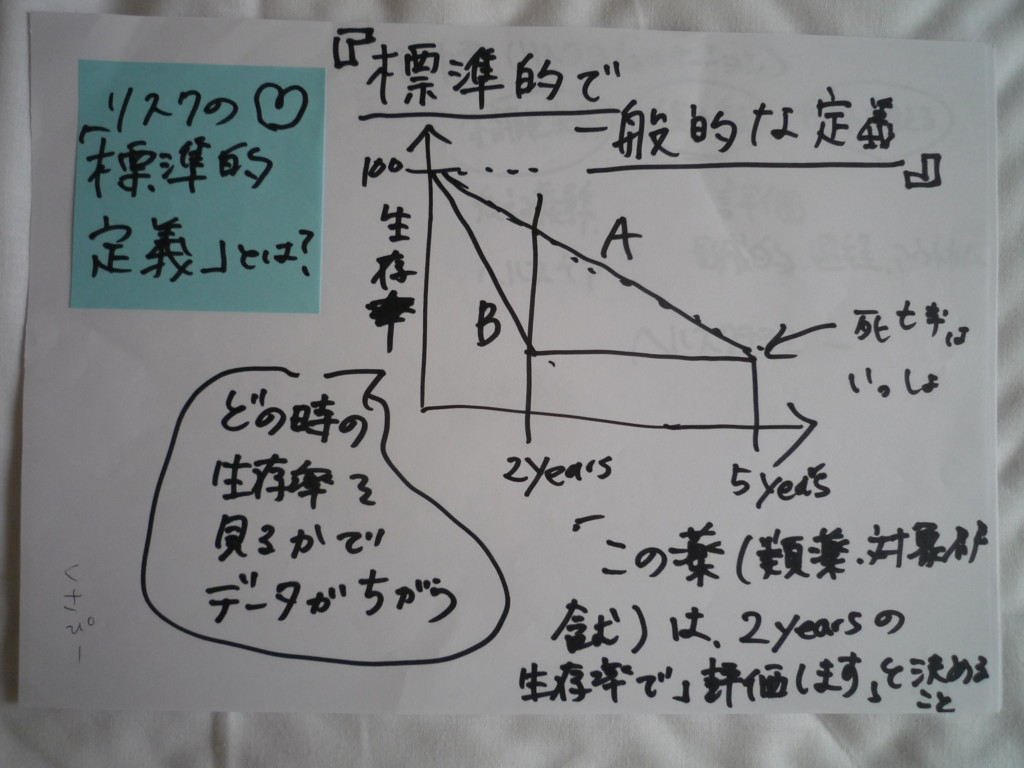 リスクの♡
「標準的
定義」とは?
『標準的で
一般的な定義』
100
生存率
A
B
死亡率は
いっしょ
2years
5years
どの時の
生存率を
見るかで
データがちがう
「この薬(類薬・対象
含む)は、2yearsの
生存率で」評価します」と決める
こと
くすぴー